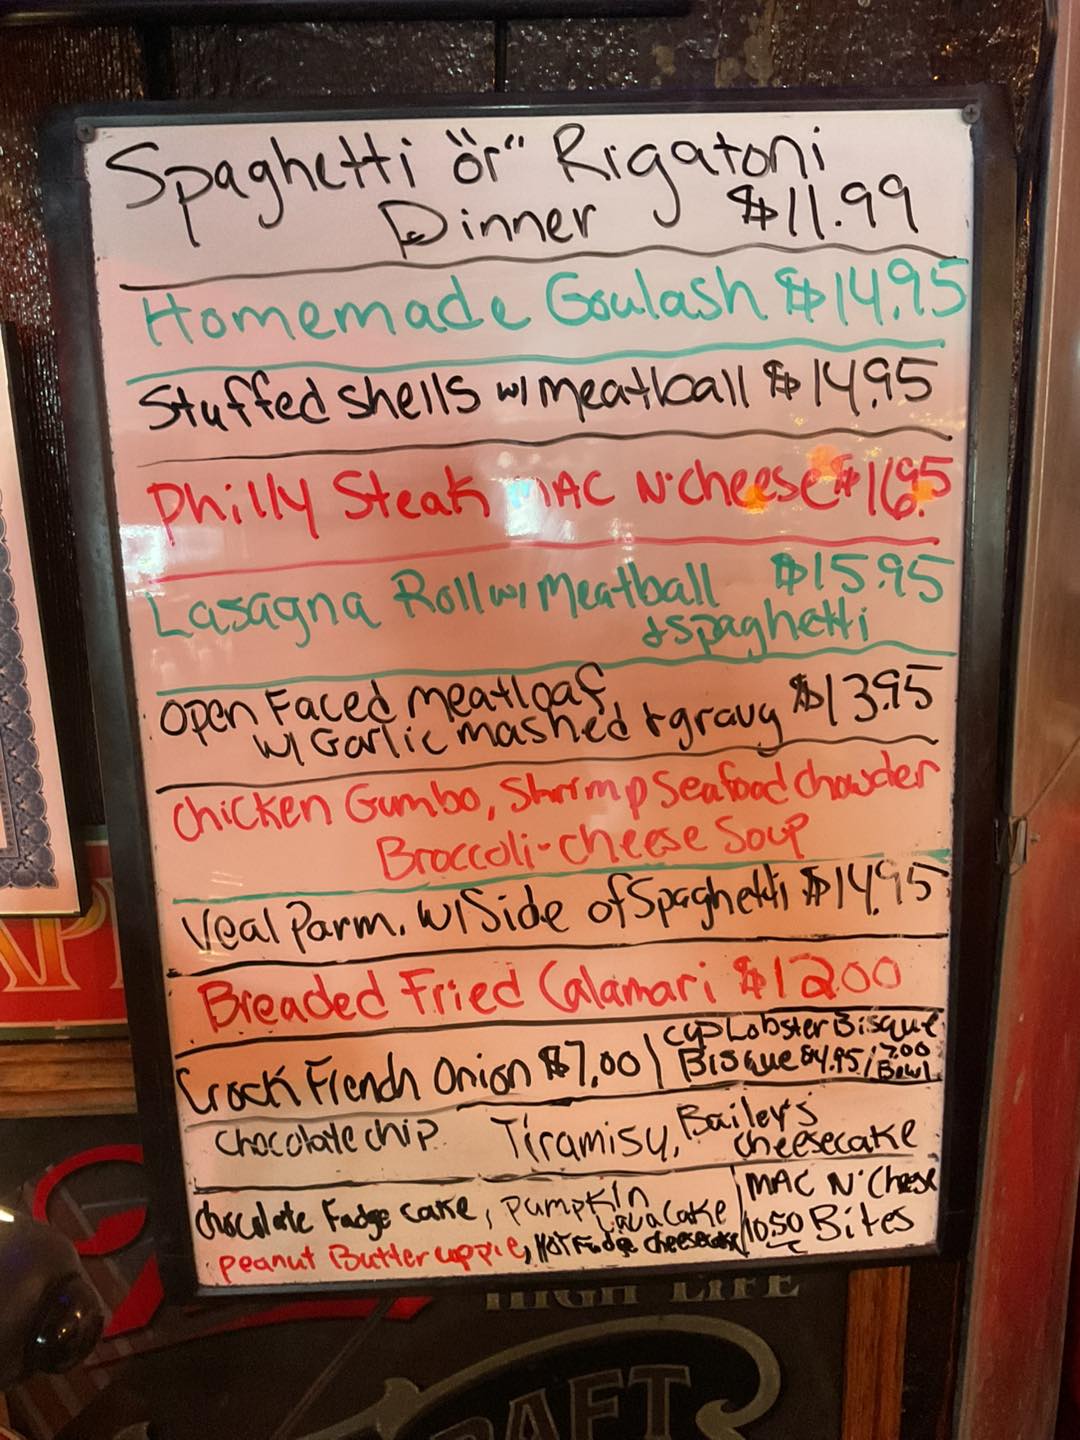 Spaghetti "or" Rigatoni
Dinner $11.99
Homemade Goulash $14.95
Stuffed shells w/ meatball $14.95
Philly Steak MAC N' cheese $16.95
Lasagna Roll w/ Meatball $15.95
& spaghetti
Open Faced meatloaf
w/ Garlic mashed & gravy $13.95
Chicken Gumbo, Shrimp Seafood chowder
Broccoli-cheese Soup
Veal Parm. w/ Side of Spaghetti $14.95
Breaded Fried Calamari $12.00
Crock French Onion $7.00
cup Lobster Bisque
Bisque $4.95 / 7.00
Bowl
Chocolate chip. Tiramisu, Bailey's
cheesecake
Chocolate Fudge cake, Pumpkin
Lava Cake
peanut Butter cup pie, Hot Fudge cheesecake
MAC N' Cheese
10.50 Bites
HIGH LIFE